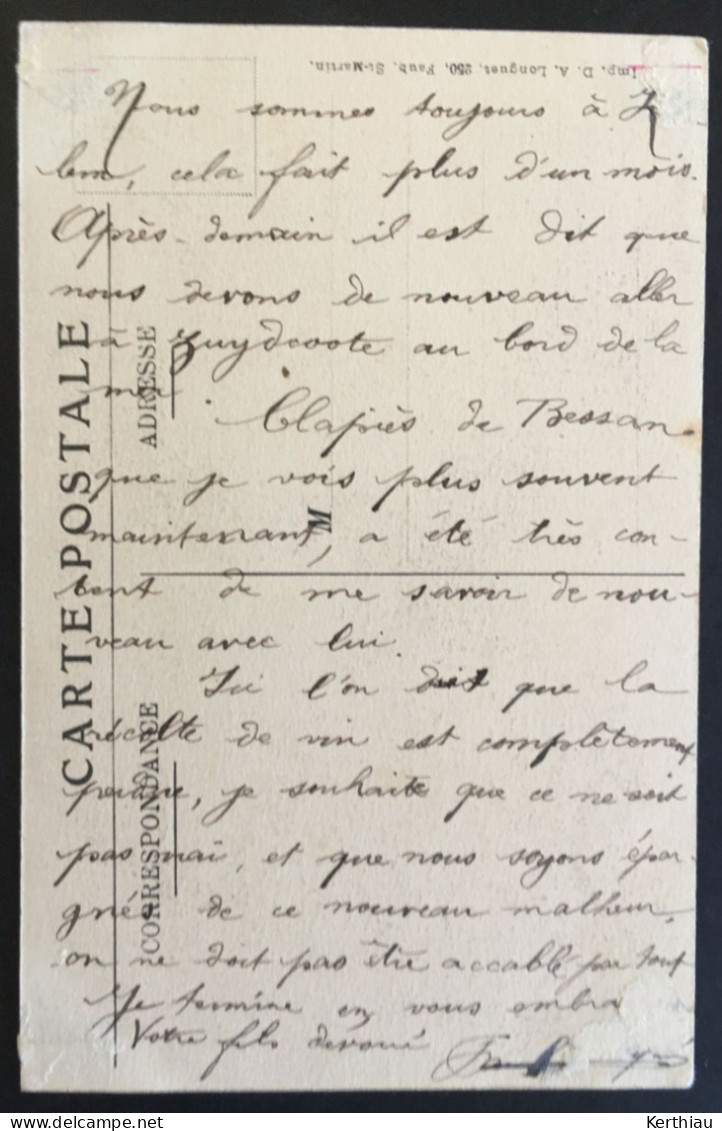 Imp. D. A. Longuet, 250, Faub. St-Martin.
CARTE POSTALE
CORRESPONDANCE
ADRESSE
M
Nous sommes toujours à
lem, cela fait plus d'un mois.
Après-demain il est dit que
nous devons de nouveau aller
à Zuydcoote au bord de la
mer.
Clapiès de Bessan
que je vois plus souvent
maintenant, a été très con-
tent de me savoir de nou-
veau avec lui.
Ici l'on dit que la
récolte de vin est complètement
perdue, je souhaite que ce ne soit
pas vrai, et que nous soyons épar-
gnés de ce nouveau malheur,
on ne doit pas être accablé par tout
Je termine en vous embra
Votre fils dévoué
Kerthiau